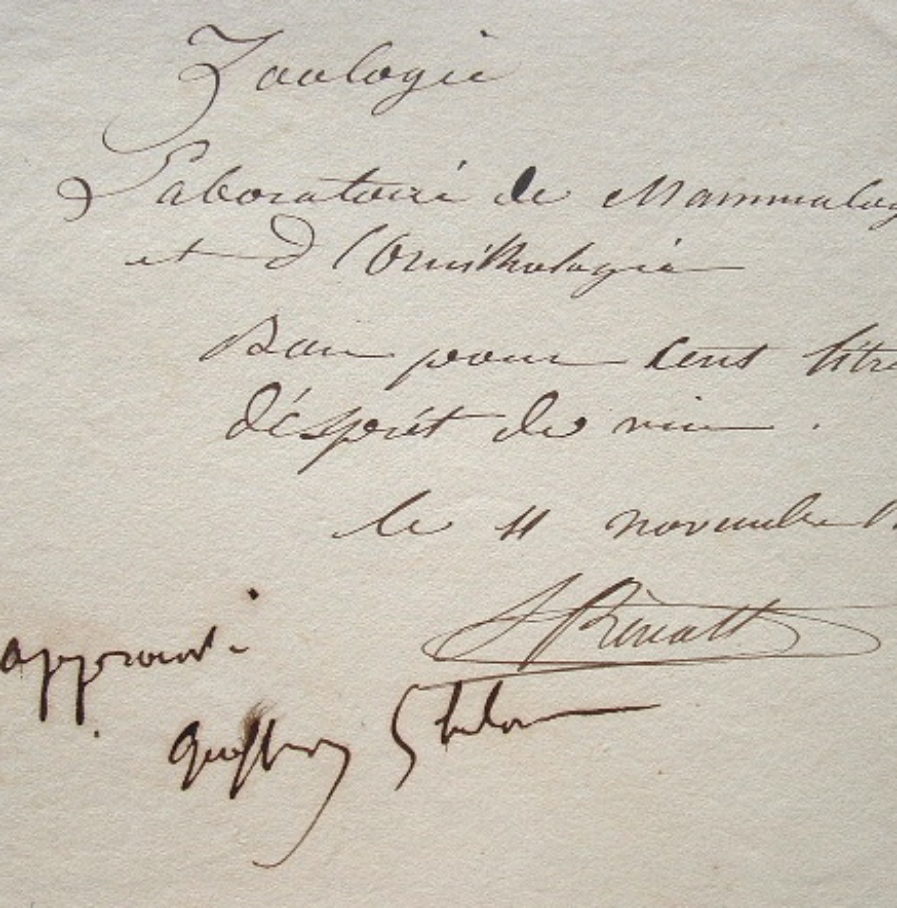 Zoologie
Laboratoire de Mammalog
et d l'Ornithologie
Bon pour cent litre
d'esprit de vin.
le 11 novembre 1
approuvé
Geoffroy St hilaire